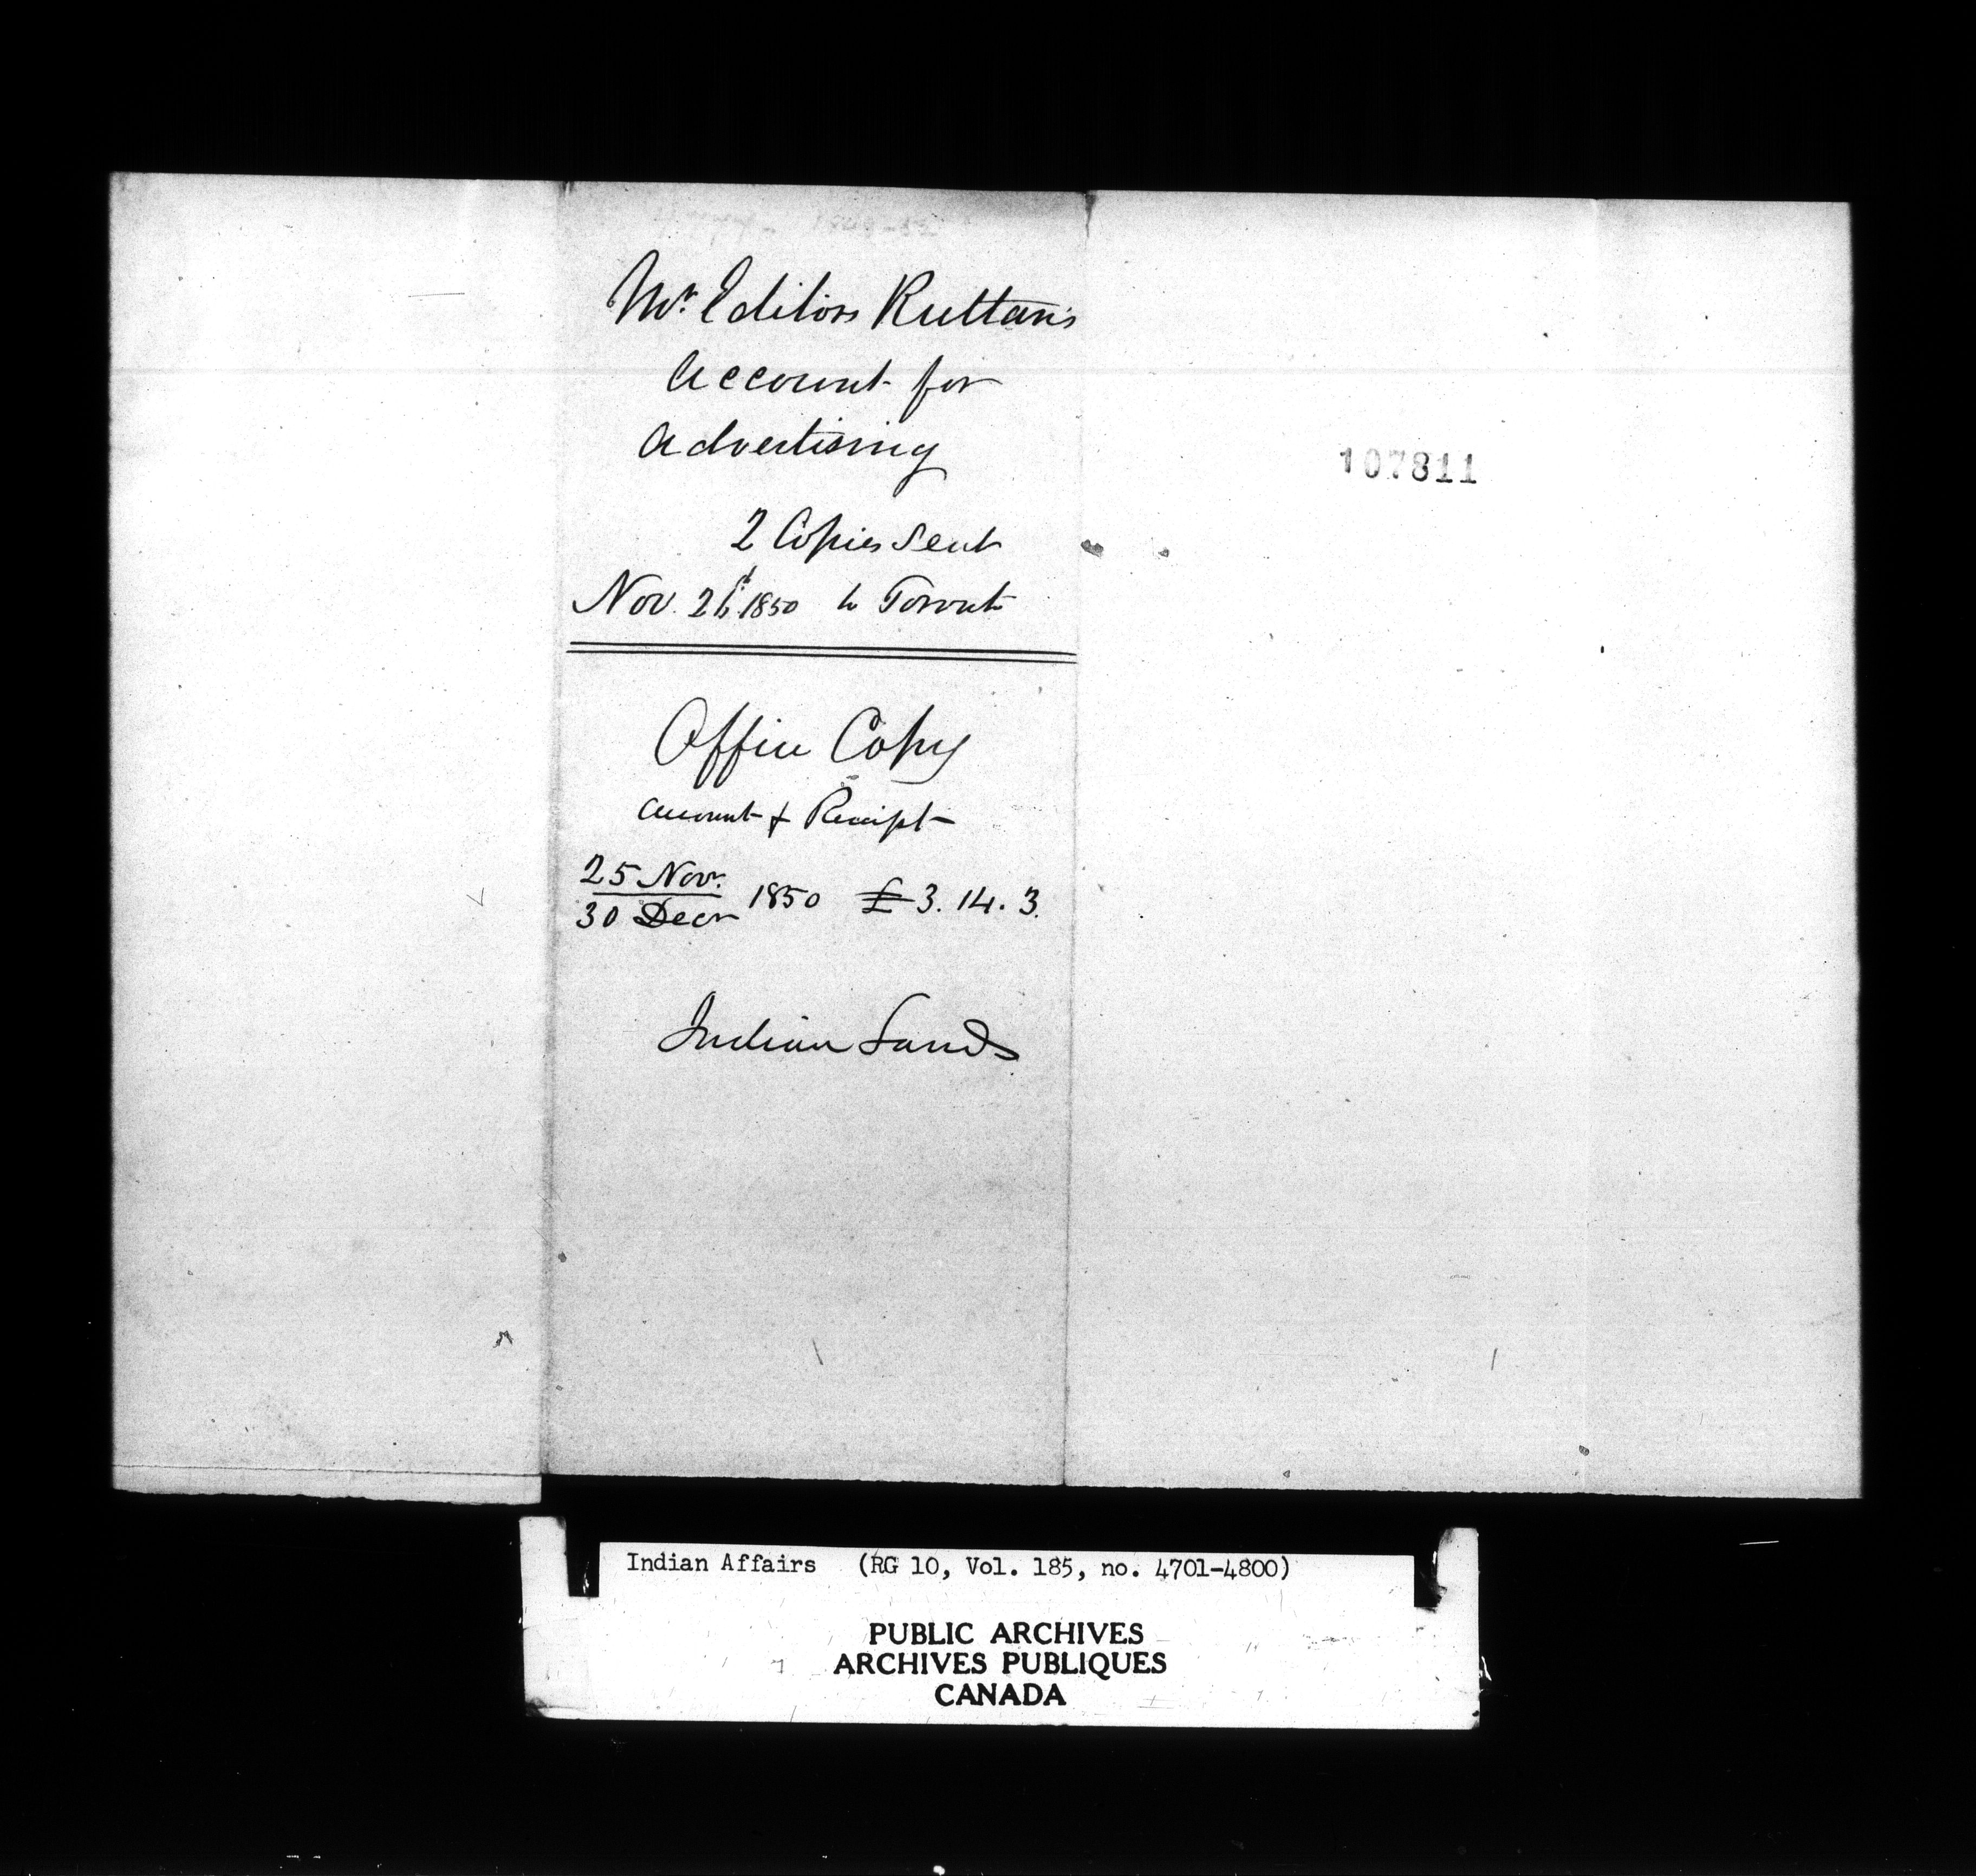 Mr. Editors Ruttan's
Account for
Advertising
2 Copies Sent
Nov. 1850 to Toronto
Office Copy
Account & Receipt
25 Novr.
30 Decr 1850 £3.14.3.
Indian Lands
107811
Indian Affairs (RG 10, Vol. 185, no. 4701-4800)
PUBLIC ARCHIVES
ARCHIVES PUBLIQUES
CANADA